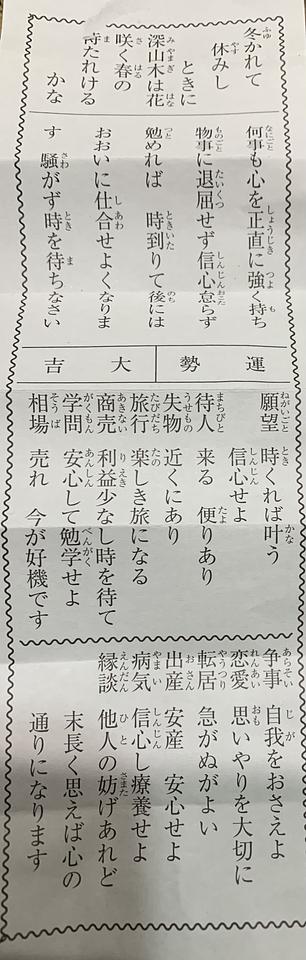 冬かれて
休みし
ときに
深山木は花
咲く春の
待たれける
かな
何事も心を正直に強く持ち
物事に退屈せず信心怠らず
勉めれば 時到りて後には
おおいに仕合せよくなりま
す 騒がず時を待ちなさい
運勢 大吉
願望 時くれば叶う
信心せよ
待人 来る 便りあり
失物 近くにあり
旅行 楽しき旅になる
商売 利益少なし時を待て
学問 安心して勉学せよ
相場 売れ 今が好機です
争事 自我をおさえよ
恋愛 思いやりを大切に
転居 急がぬがよい
出産 安産 安心せよ
病気 信心し療養せよ
縁談 他人の妨げあれど
末長く思えば心の
通りになります